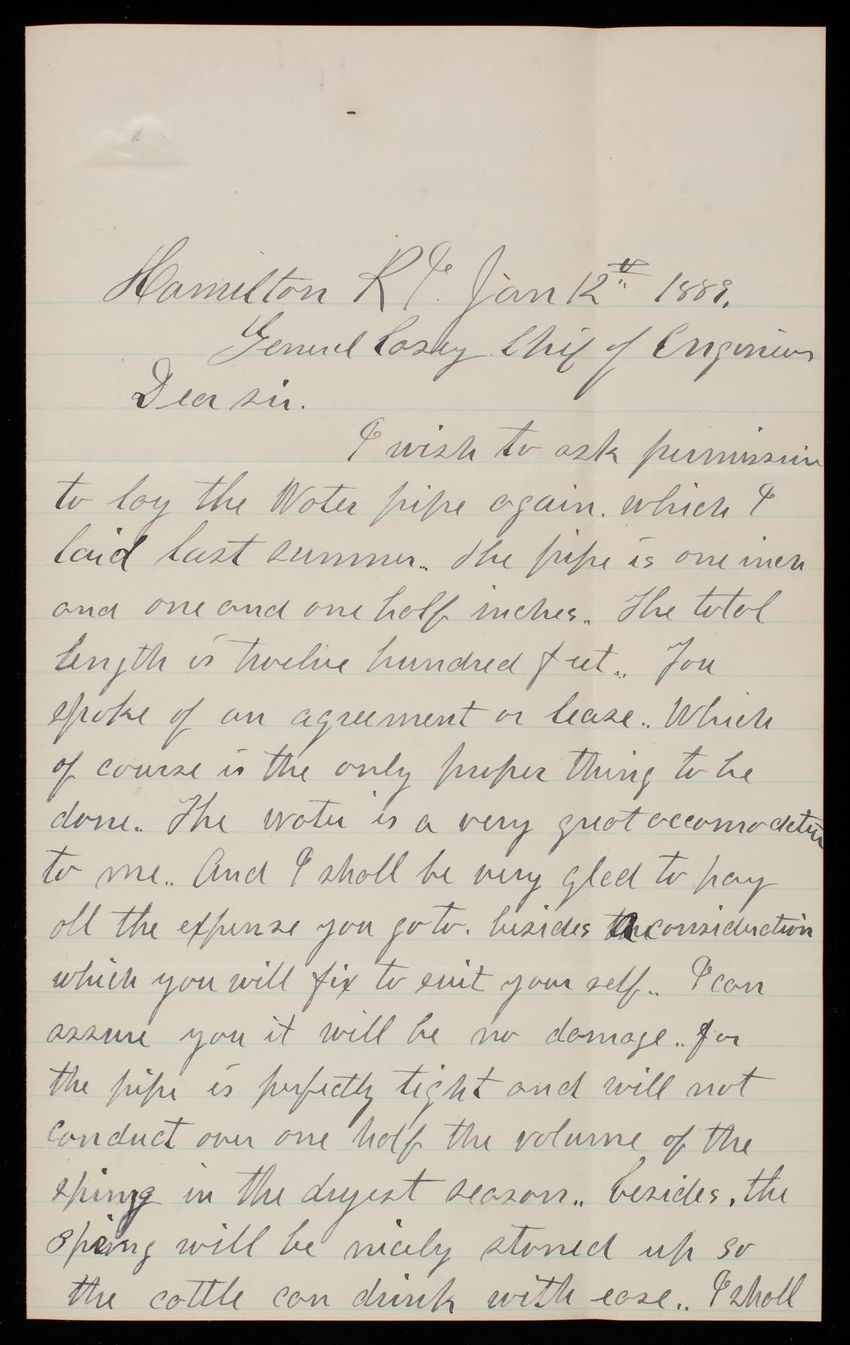 Hamilton R I. Jan 12th 1889.
General Casey Chief of Engineers
Dear sir.
I wish to ask permission
to lay the Water pipe again. which I
laid last summer.. The pipe is one inch
and one and one half inches.. The total
length is twelve hundred feet.. You
spoke of an agreement or lease.. Which
of course is the only proper thing to be
done.. The water is a very great accomodation
to me.. And I shall be very glad to pay
all the expense you go to. besides consideration
which you will fix to suit your self.. I can
assure you it will be no damage.. for
the pipe is perfectly tight and will not
conduct over one half the volume of the
spring in the dryest season.. besides, the
spring will be nicely stoned up so
the cattle can drink with ease.. I shall